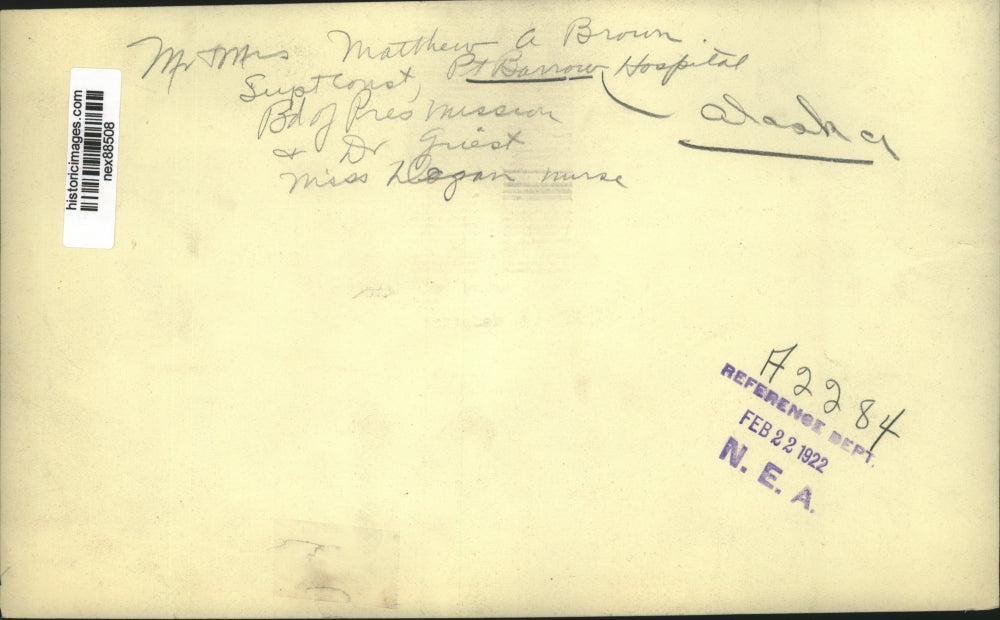 Mr & Mrs Matthew A Brown.
Supt Const, Pt Barrow Hospital
Alaska
Bd of Pres Mission
& Dr Griest
Miss Dogan nurse
historicimages.com
nex88508
A2284
REFERENCE DEPT.
FEB 22 1922
N. E. A.